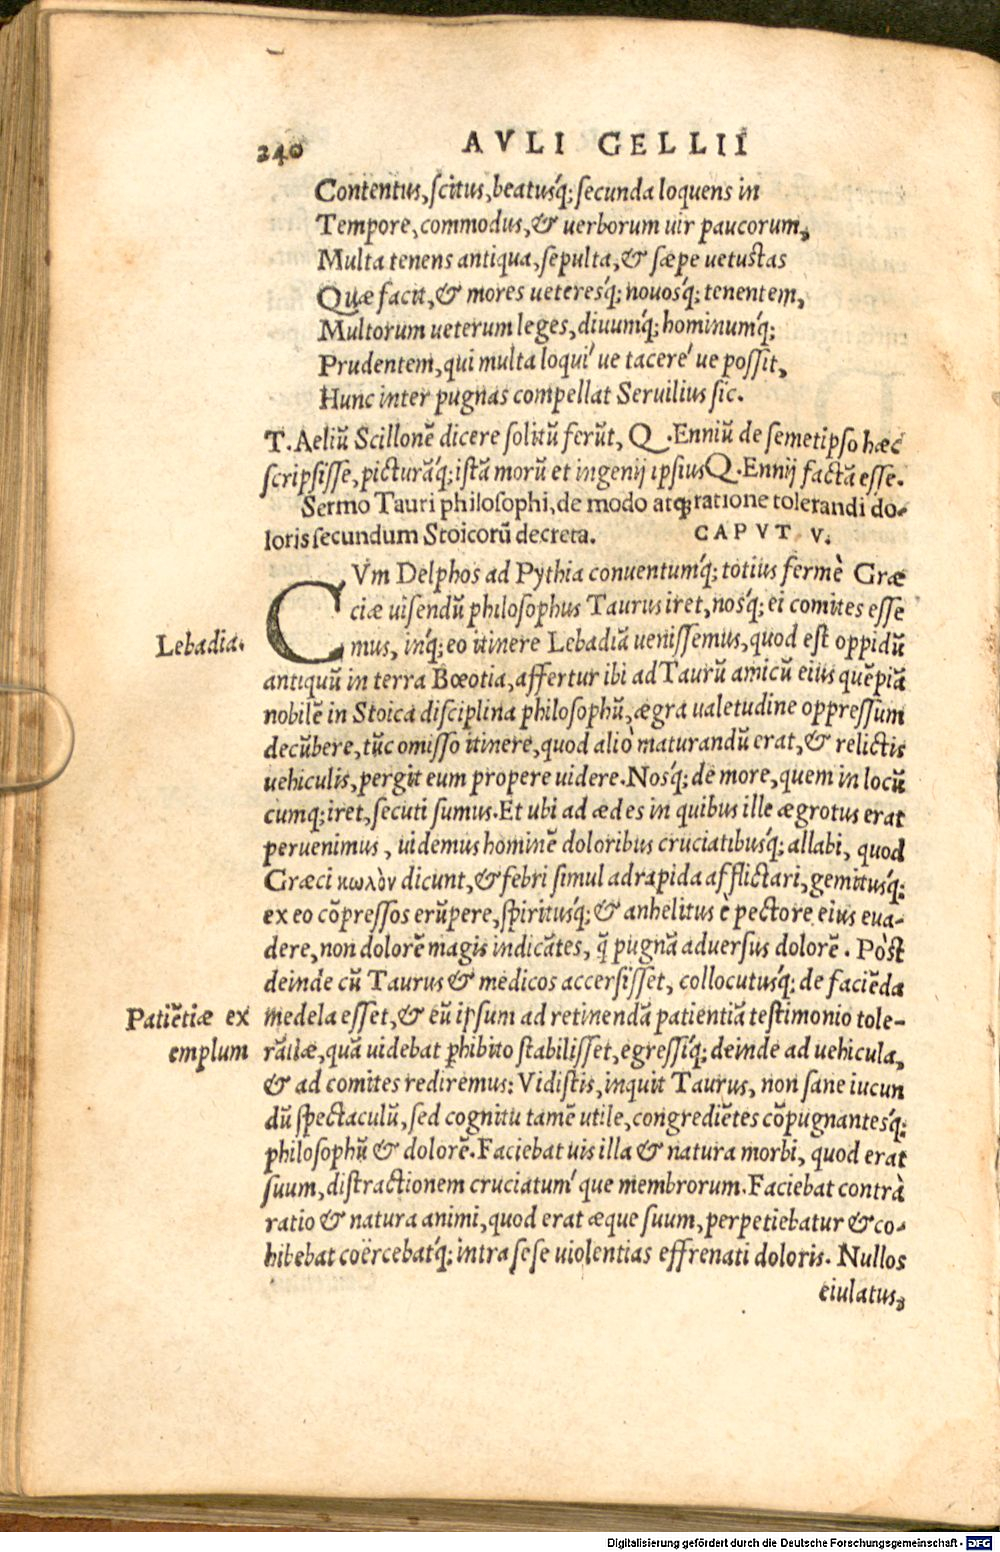 240 AVLI GELLII
Contentus, scitus, beatusq́; secunda loquens in
Tempore, commodus, & uerborum uir paucorum,
Multa tenens antiqua, sepulta, & sæpe uetustas
Quæ facit, & mores ueteresq́; nouosq́; tenentem,
Multorum ueterum leges, diuumq́; hominumq́;
Prudentem, qui multa loqui´ ue tacere´ ue possit,
Hunc inter pugnas compellat Seruilius sic.
T. Aeliũ Scillonẽ dicere solitũ ferũt, Q. Enniũ de semetipso hæc
scripsisse, picturãq́; istã morũ et ingenij ipsius Q. Ennij factã esse.
Sermo Tauri philosophi, de modo atq; ratione tolerandi do-
loris secundum Stoicorũ decreta. CAPVT V.
CVm Delphos ad Pythia conuentumq́; totius fermè Græ
ciæ uisendũ philosophus Taurus iret, nosq́; ei comites esse
Lebadia. mus, inq́; eo itinere Lebadiã uenissemus, quod est oppidũ
antiquũ in terra Bœotia, affertur ibi ad Taurũ amicũ eius quẽpiã
nobilẽ in Stoica disciplina philosophũ, ægra ualetudine oppressum
decũbere, tũc omisso itinere, quod aliò maturandũ erat, & relictis
uehiculis, pergit eum propere uidere. Nosq́; de more, quem in locũ
cumq; iret, secuti sumus. Et ubi ad ædes in quibus ille ægrotus erat
peruenimus, uidemus hominẽ doloribus cruciatibusq́; allabi, quod
Græci κωλὸν dicunt, & febri simul ad rapida afflictari, gemitusq́;
ex eo cõpressos erũpere, spiritusq́; & anhelitus è pectore eius eua-
dere, non dolorẽ magis indicãtes, q̃ pugnã aduersus dolorẽ. Pòst
deinde cũ Taurus & medicos accersisset, collocutusq́; de faciẽda
Patiẽtiæ ex medela esset, & eũ ipsum ad retinendã patientiã testimonio tole-
emplum rãtiæ, quã uidebat phibito stabilisset, egressiq́; deinde ad uehicula,
& ad comites rediremus: Vidistis, inquit Taurus, non sane iucun
dũ spectaculũ, sed cognitu tamẽ utile, congrediẽtes cõpugnantesq́;
philosophũ & dolorẽ. Faciebat uis illa & natura morbi, quod erat
suum, distractionem cruciatum´ que membrorum. Faciebat contrà
ratio & natura animi, quod erat æque suum, perpetiebatur & co-
hibebat coërcebatq́; intra sese uiolentias effrenati doloris. Nullos
eiulatus,
Digitalisierung gefördert durch die Deutsche Forschungsgemeinschaft - DFG